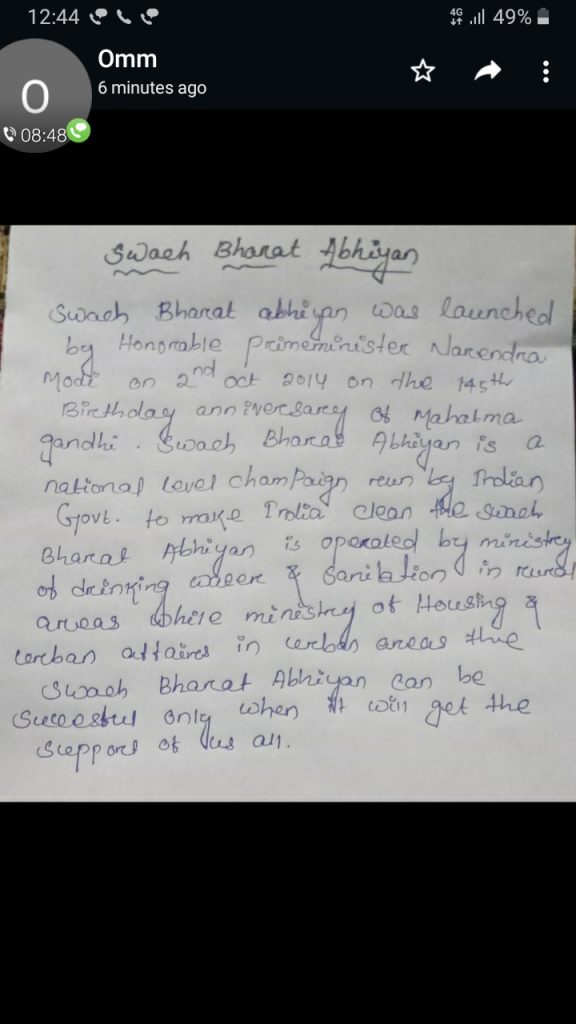 12:44 4G 49%
Omm
6 minutes ago
O
08:48
Swach Bharat Abhiyan
Swach Bharat abhiyan was launched
by Honorable primeminister Narendra
Modi on 2nd oct 2014 on the 145th
Birthday anniversary of Mahatma
gandhi. Swach Bharat Abhiyan is a
national level champaign run by Indian
Govt. to make India clean the swach
Bharat Abhiyan is operated by ministry
of drinking water & Sanitation in rural
areas while ministry of Housing &
urban affairs in urban areas the
Swach Bharat Abhiyan can be
Succesful only when it will get the
Support of us all.